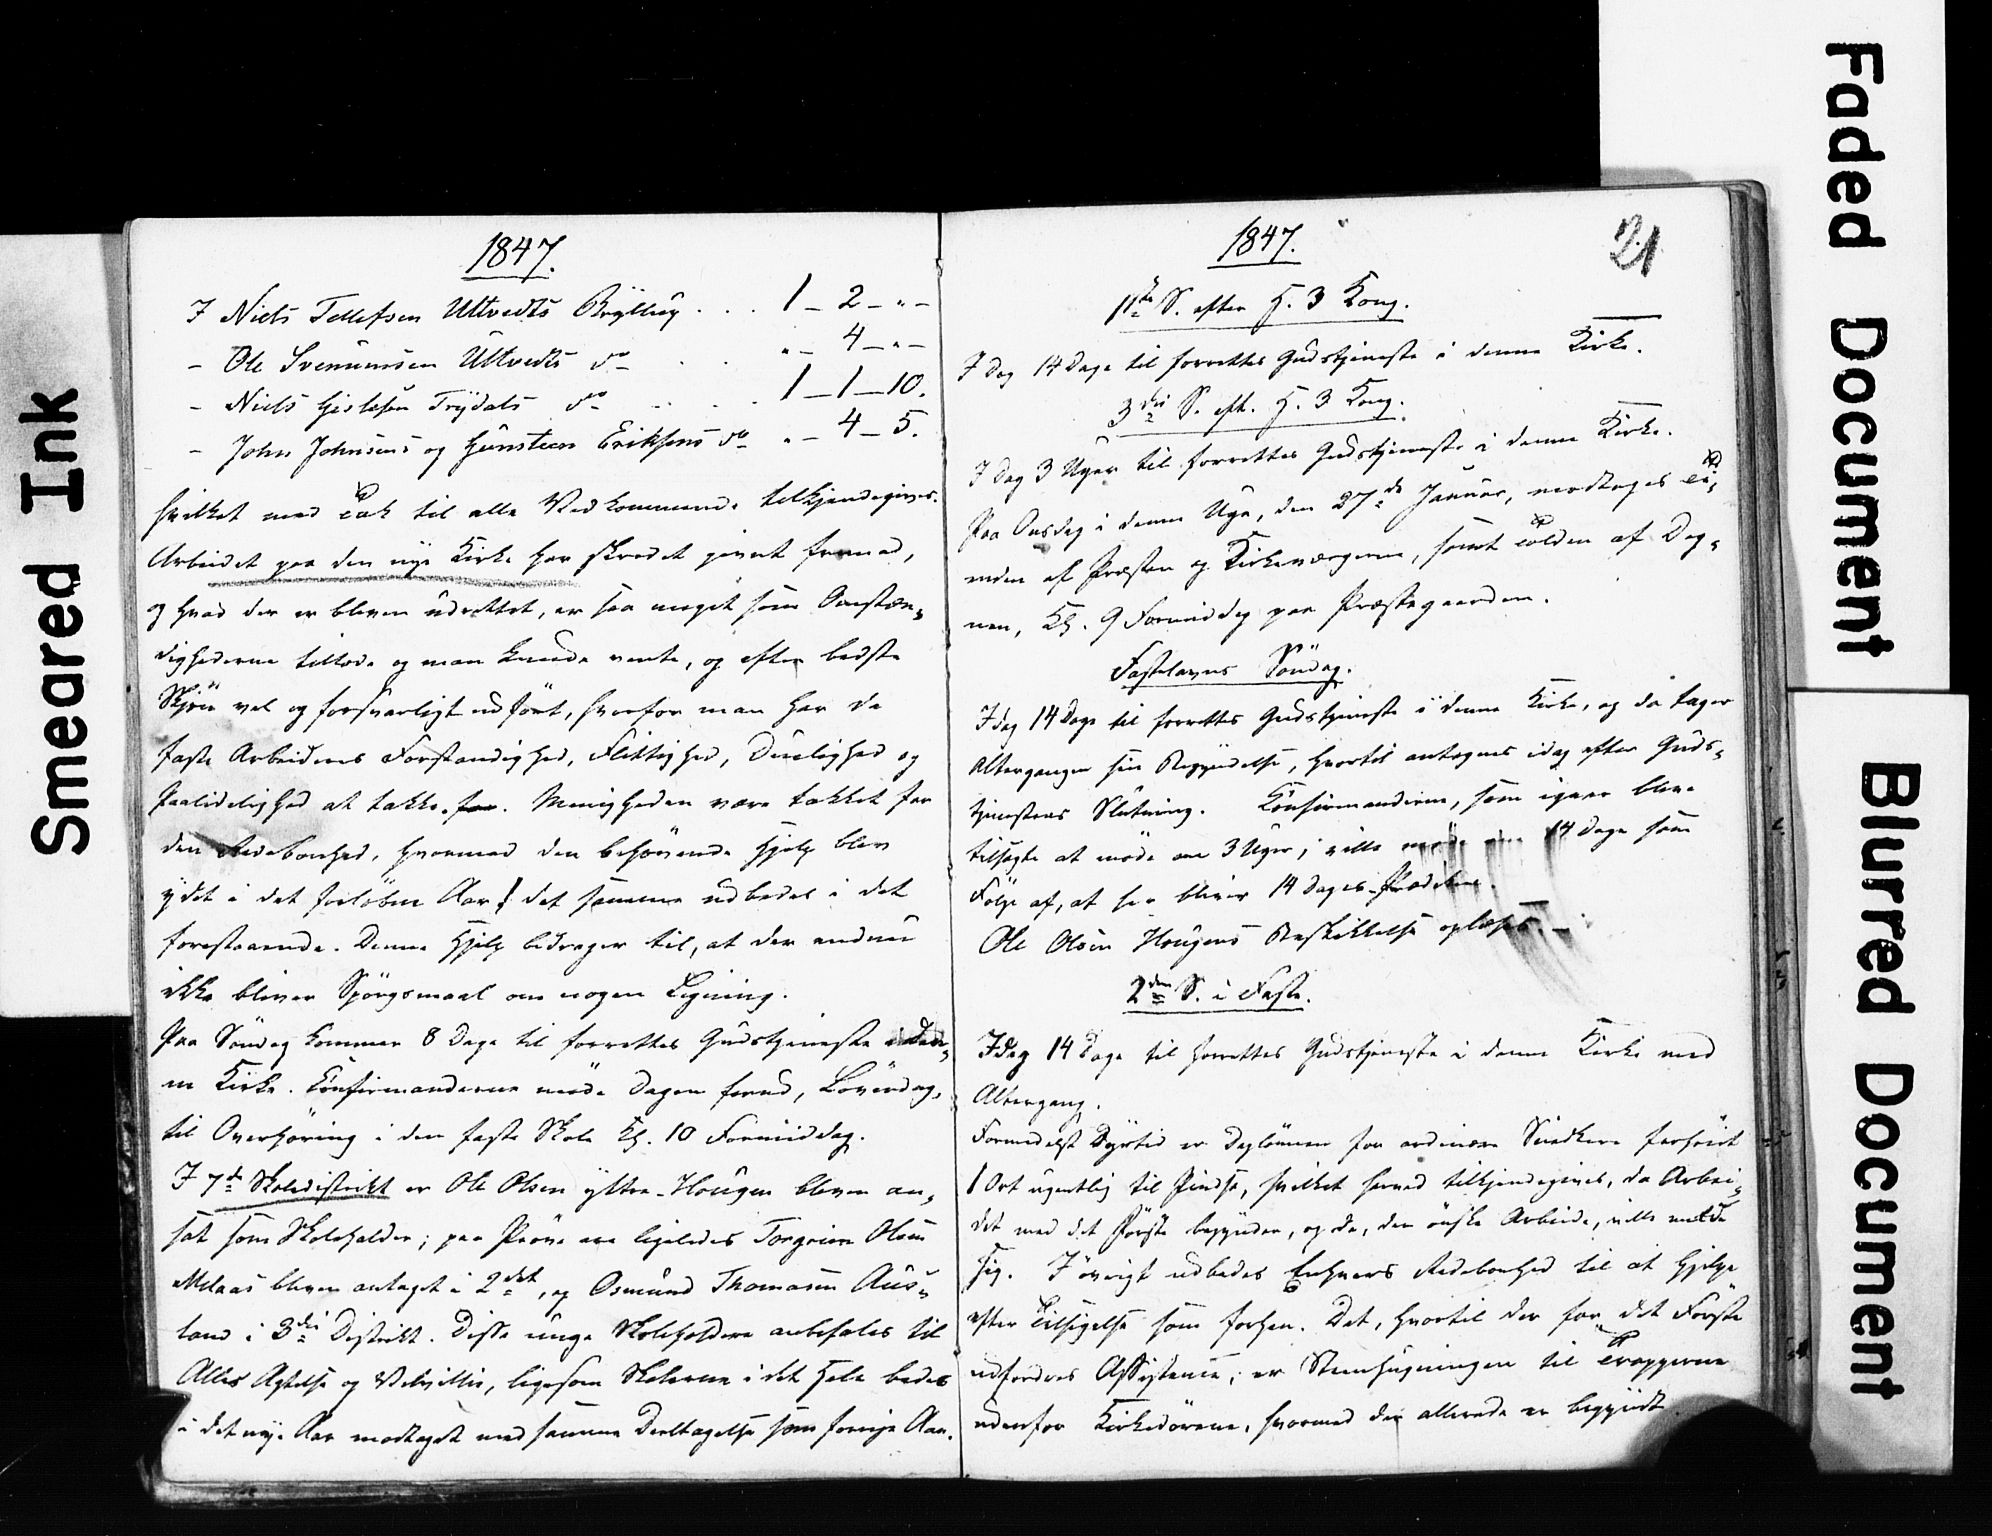 1847.
I Niels Tellefsen Ultvedts Bryllup . . . 1 – 2 – " –
– Ole Svenumsen Ultvedts do . . " – 4 – " –
– Niels Gislesen Trydals do . . . 1 – 1 – 10.
– John Johnsens og Gunsteen Eriksens do " – 4 – 5.
hvilket med Tak til alle Vedkommende tilkjendegives.
Arbeidet paa den nye Kirke har skredet jevnt fremad,
og hvad der er bleven udrettet, er saa meget som Omstæn-
dighederne tillode og man kunde vente, og efter bedste
Skjøn vel og forsvarligt udført, hvorfor man har de
faste Arbeideres Forstandighed, Flittighed, Duelighed og
Paalidelighed at takke. Menigheden være takket for
den Redebonhed, hvormed den behøvende Hjelp blev
ydet i det forløbne Aar! det samme udbedes i det
forestaaende. Denne Hjelp bidrager til, at der endnu
ikke bliver Spörgsmaal om nogen Ligning.
Paa Søndag kommer 8 Dage til forrettes Gudstjeneste i den-
ne Kirke. Confirmanderne møde Dagen forud, Løverdag,
til Overhøring i den faste Skole Kl. 10 Formiddag.
I 7de Skoledistrikt er Ole Olsen yttre-Hougen bleven an-
sat som Skoleholder; paa Prøve ere ligeledes Torgrim Olsen
Melaas bleven antaget i 2det, og Osmund Thomasen Aus-
land i 3die Distrikt. Disse unge Skoleholdere anbefales til
Alles Agtelse og Velvillie, ligesom Skolerne i det Hele bedes
i det nye Aar modtaget med samme Deeltagelse som forrige Aar.
1847.
21
1ste S. efter H. 3 Kong.
I dag 14 Dage til forrettes Gudstjeneste i denne Kirke.
3die S. eft. H. 3 Kong.
I dag 3 Uger til forrettes Gudstjeneste i denne Kirke.
Paa Onsdag i denne Uge, den 27de Januar, modtages Ti-
enden af Præsten og Kirkeværgerne, samt Tolden af Deg-
nen, Kl. 9 Formiddag paa Præstegaarden.
Fastelavns Søndag.
Idag 14 Dage til forrettes Gudstjeneste i denne Kirke, og da tager
Altergangen sin Begyndelse, hvortil antegnes idag efter Guds-
tjenestens Slutning. Confirmanderne, som igaar bleve
tilsagte at møde om 3 Uger, ville møde om 14 Dage som
Følge af, at her bliver 14 Dages Prædiken.
Ole Olsen Hougens Beskikkelse oplæses –
2den S. i Faste.
Idag 14 Dage til forrettes Gudstjeneste i denne Kirke med
Altergang.
Formedelst Dyrtid er Daglønnen for ordinære Snedkere forhøiet
1 Ort ugentlig til Pindse, hvilket herved tilkjendegives, da Arbei-
det med det Første begynder, og de, der ønske Arbeide, ville melde
sig. I øvrigt udbedes Enhvers Redebonhed til at hjelpe
efter Tilsigelse som forhen. Det, hvortil der for det Første
udfordres Assistence, er Steenhugningen til Trapperne
udenfor Kirkedørene, hvormed der allerede er begyndt
Smeared Ink
Faded Document
Blurred Document